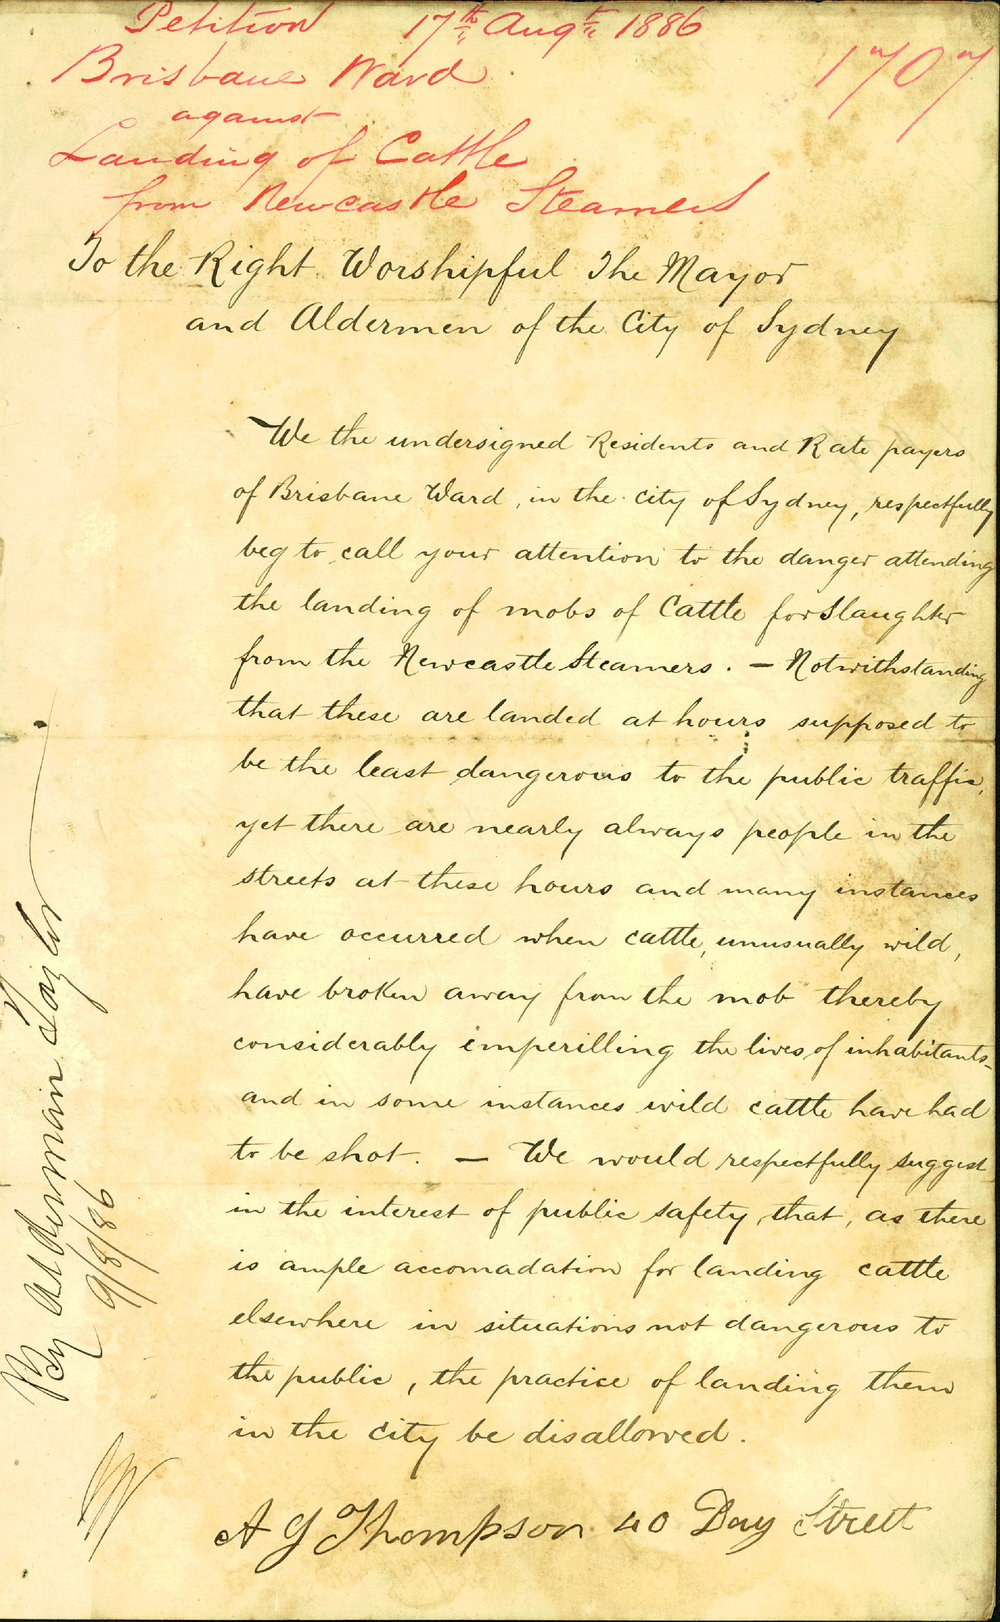 Petition 17th Augt 1886
1707
Brisbane Ward
against
Landing of Cattle
from Newcastle Steamers
To the Right Worshipful The Mayor
and Aldermen of the City of Sydney
We the undersigned Residents and Rate payers
of Brisbane Ward, in the city of Sydney, respectfully
beg to call your attention to the danger attending
the landing of mobs of Cattle for Slaughter
from the Newcastle Steamers. — Notwithstanding
that these are landed at hours supposed to
be the least dangerous to the public traffic,
yet there are nearly always people in the
streets at these hours and many instances
have occurred when cattle, unusually wild,
have broken away from the mob thereby
considerably imperilling the lives of inhabitants—
and in some instances wild cattle have had
to be shot. — We would respectfully suggest
in the interest of public safety, that, as there
is ample accomadation for landing cattle
elsewhere in situations not dangerous to
the public, the practice of landing them
in the city be disallowed.
A G Thompson 40 Day Street
By Alderman Taylor
9/8/86